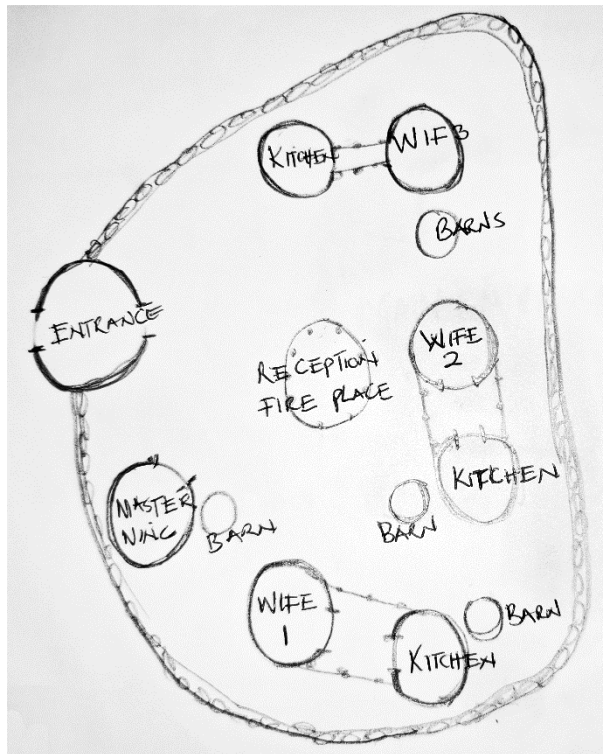 KITCHEN
WIF3
BARNS
ENTRANCE
RECEPTION
FIRE PLACE
WIFE
2
KITCHEN
MASTER
NING
BARN
BARN
WIFE
1
KITCHEN
BARN